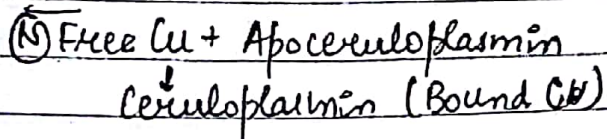 Ⓝ Free Cu + Apoceruloplasmin
↓
Ceruloplasmin (Bound Cu)